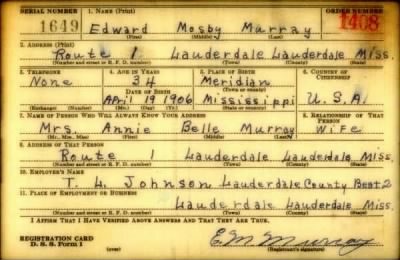 SERIAL NUMBER 1. NAME (Print) ORDER NUMBER
1649 Edward Mosby Murray 1408
(First) (Middle) (Last)
2. ADDRESS (Print)
Route 1 Lauderdale Lauderdale Miss.
(Number and street or R. F. D. number) (Town) (County) (State)
3. TELEPHONE 4. AGE IN YEARS 5. PLACE OF BIRTH 6. COUNTRY OF CITIZENSHIP
None 34 Meridian
DATE OF BIRTH (Town or county)
April 19 1906 Mississippi U.S.A.
(Exchange) (Number) (Mo.) (Day) (Yr.) (State or country)
7. NAME OF PERSON WHO WILL ALWAYS KNOW YOUR ADDRESS 8. RELATIONSHIP OF THAT PERSON
Mrs. Annie Belle Murray Wife
(Mr., Mrs., Miss) (First) (Middle) (Last)
9. ADDRESS OF THAT PERSON
Route Lauderdale Lauderdale Miss.
(Number and street or R. F. D. number) (Town) (County) (State)
10. EMPLOYER'S NAME
T. L. Johnson Lauderdale County Beat 2
11. PLACE OF EMPLOYMENT OR BUSINESS
Lauderdale Lauderdale Miss.
(Number and street or R. F. D. number) (Town) (County) (State)
I AFFIRM THAT I HAVE VERIFIED ABOVE ANSWERS AND THAT THEY ARE TRUE.
REGISTRATION CARD
D. S. S. Form 1 (over) E. M. Murray
(Registrant's signature)